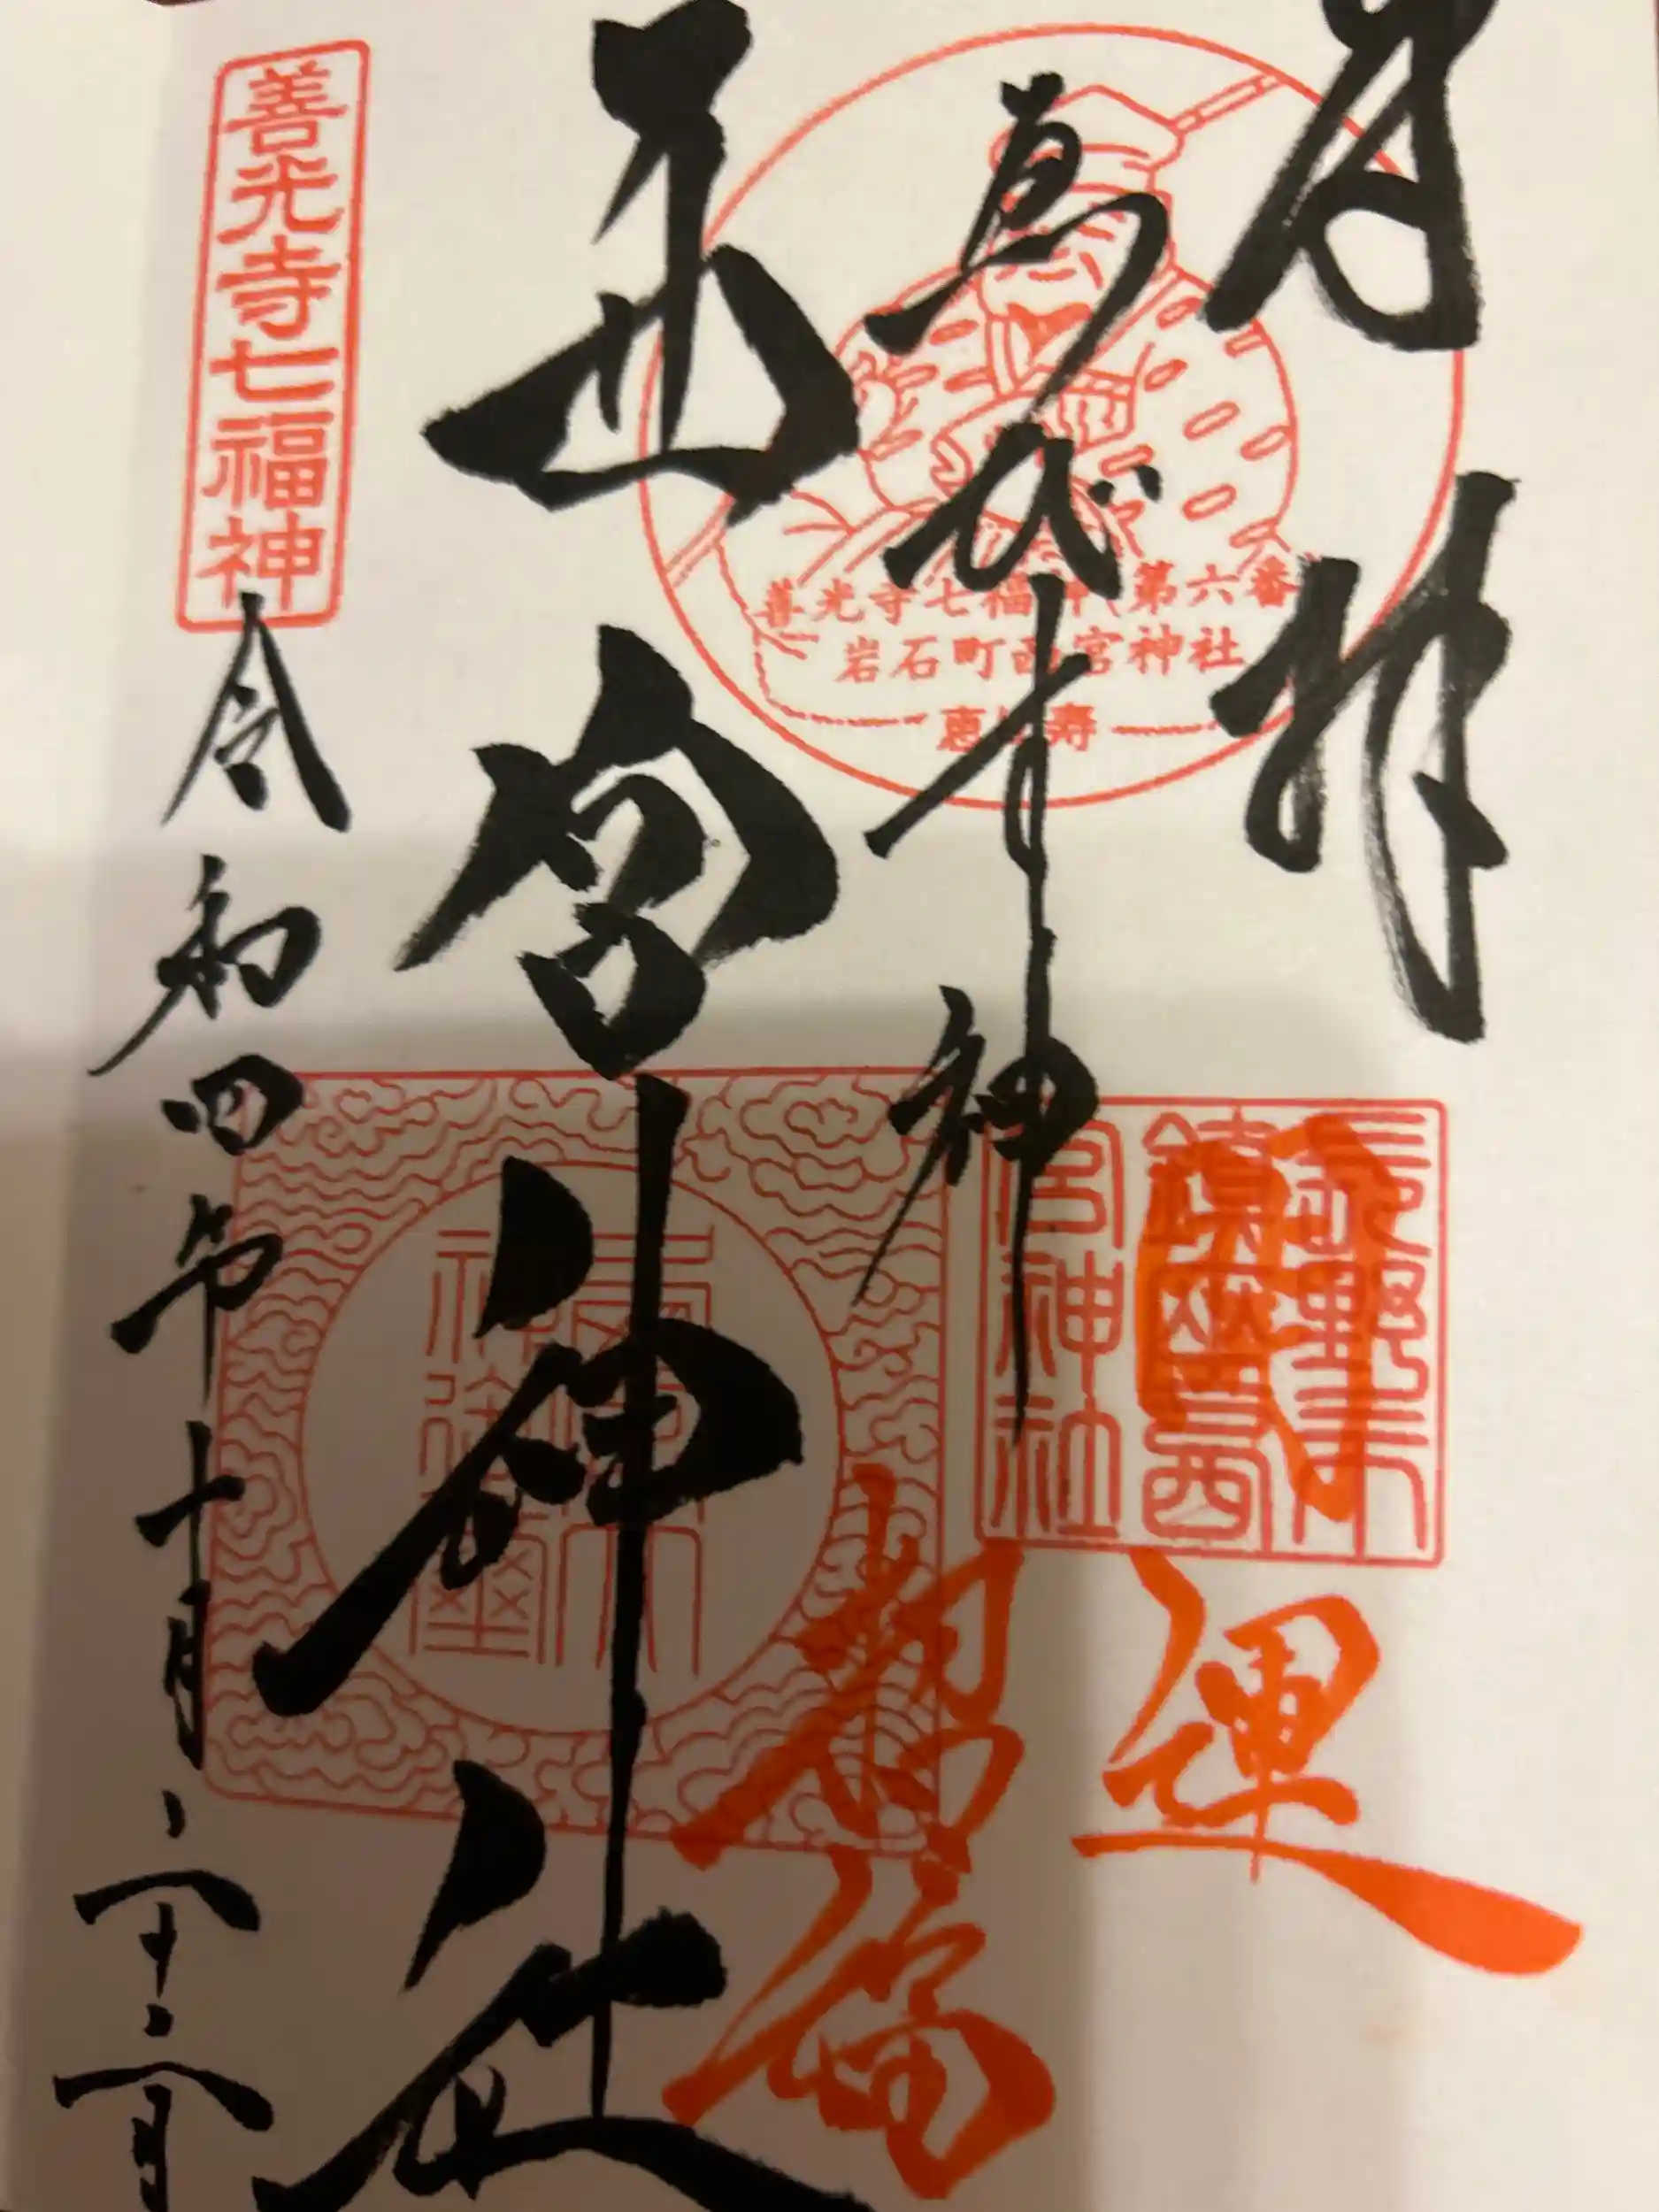 拝
ゑびす神
善光寺七福神 第六番
岩石町西宮神社
恵比寿
長野市
鎮座西
宮神社
開運
招福
西宮神社
善光寺七福神
令和四年十月二十二日